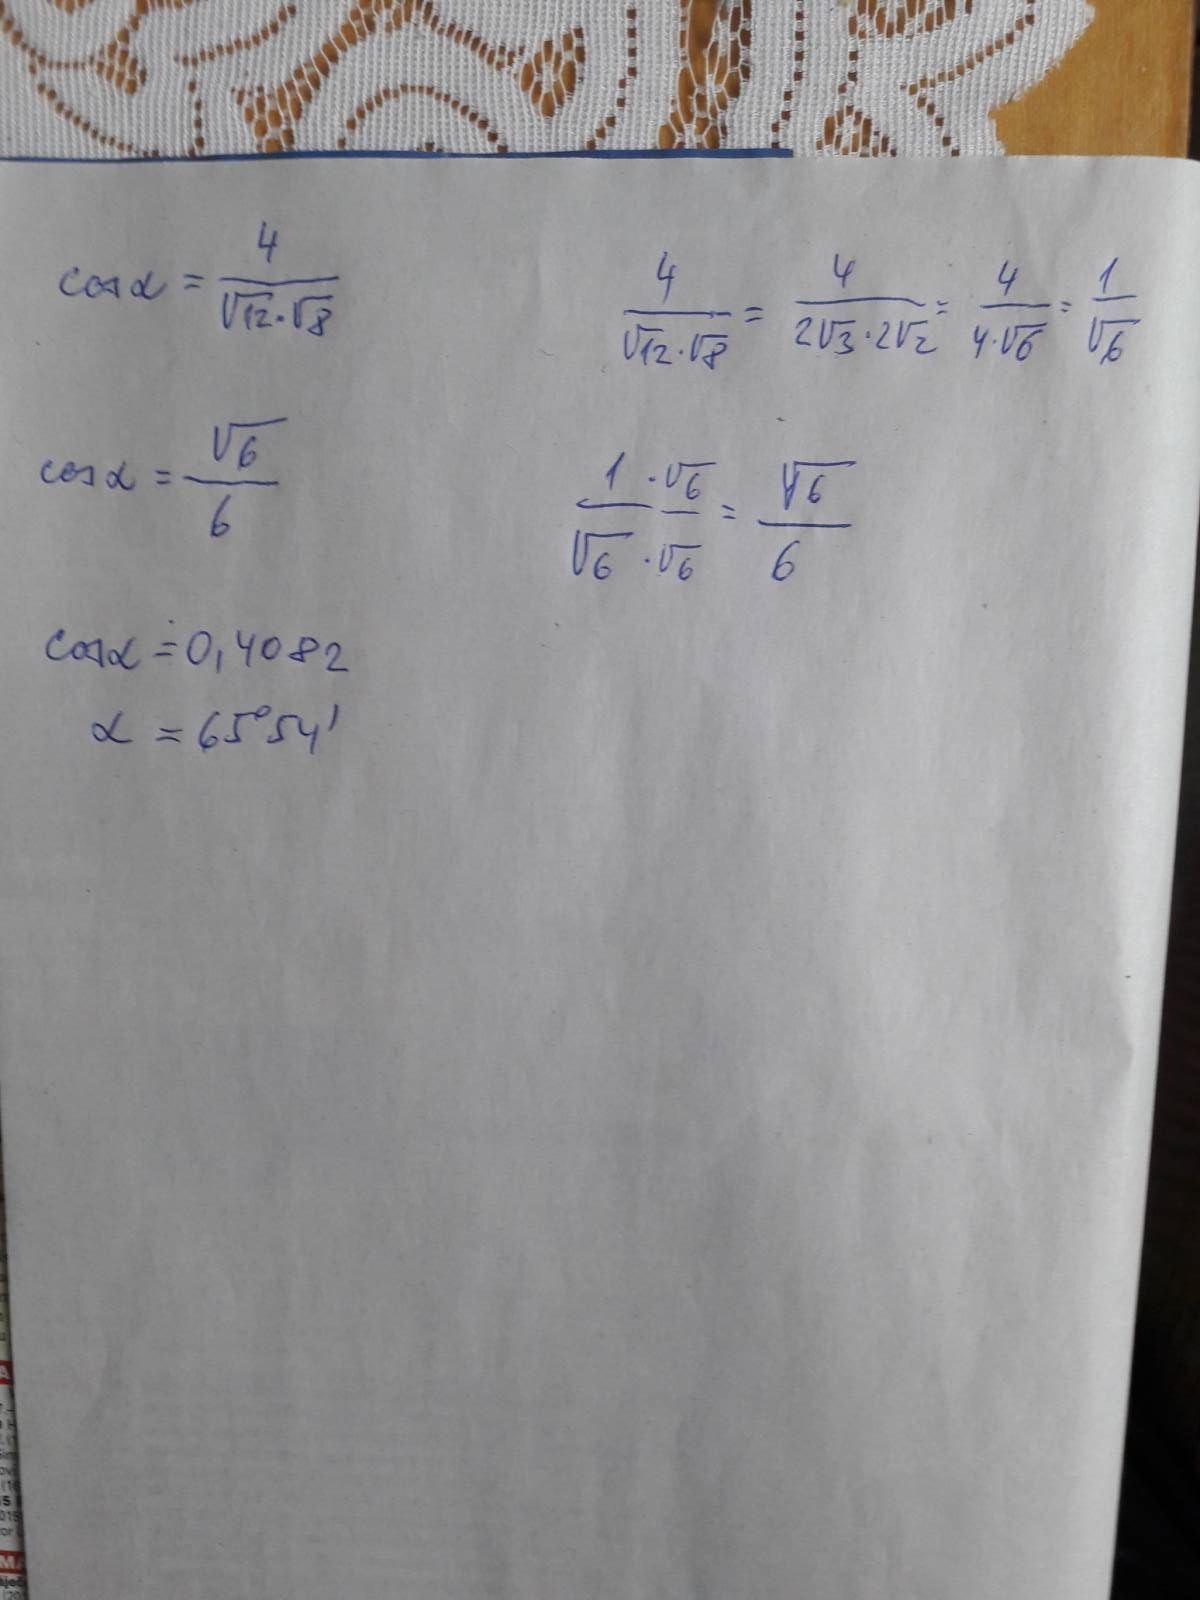 cos α = 4/(√12·√8)
4/(√12·√8) = 4/(2√3·2√2) = 4/(4·√6) = 1/√6
cos α = √6/6
1/√6 · √6/√6 = √6/6
cos α ≐ 0,4082
α = 65°54'